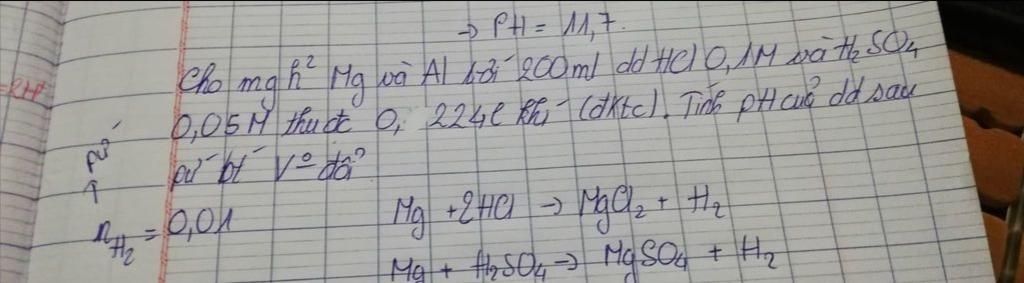 → PH = 11,7.
Cho mg h² Mg và Al với 200ml dd HCl 0,1M và H₂SO₄
0,05M thu đc 0,224l khí (đktc). Tính pH của dd sau
pứ bt V⁰ đổi
pứ
↑
nH₂ = 0,01
Mg + 2HCl → MgCl₂ + H₂
Mg + H₂SO₄ → MgSO₄ + H₂